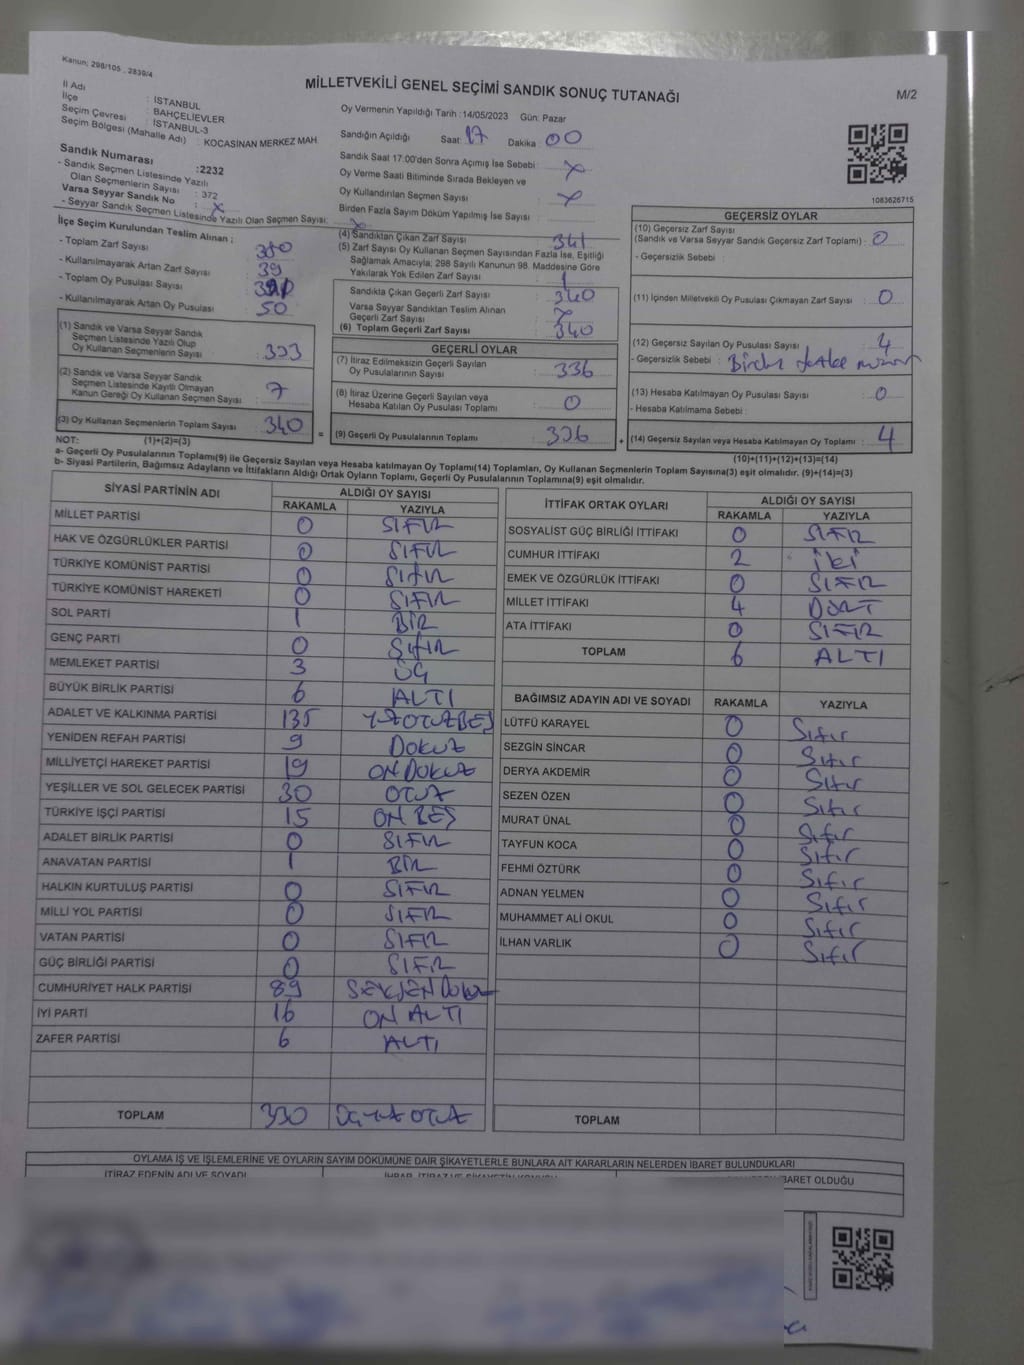 Kanun; 298/105 , 2839/4
MİLLETVEKİLİ GENEL SEÇİMİ SANDIK SONUÇ TUTANAĞI
M/2
İl Adı : İSTANBUL
İlçe : BAHÇELİEVLER
Seçim Çevresi : İSTANBUL-3
Seçim Bölgesi (Mahalle Adı) : KOCASİNAN MERKEZ MAH
Sandık Numarası :2232
- Sandık Seçmen Listesinde Yazılı
Olan Seçmenlerin Sayısı : 372
Varsa Seyyar Sandık No : x
- Seyyar Sandık Seçmen Listesinde Yazılı Olan Seçmen Sayısı: x
Oy Vermenin Yapıldığı Tarih :14/05/2023 Gün: Pazar
Sandığın Açıldığı Saat: 17 Dakika : 00
Sandık Saat 17:00'den Sonra Açımış İse Sebebi : x
Oy Verme Saati Bitiminde Sırada Bekleyen ve
Oy Kullandırılan Seçmen Sayısı : x
Birden Fazla Sayım Döküm Yapılmış İse Sayısı :
1083626715
İlçe Seçim Kurulundan Teslim Alınan ;
- Toplam Zarf Sayısı : 380
- Kullanılmayarak Artan Zarf Sayısı : 39
- Toplam Oy Pusulası Sayısı :
- Kullanılmayarak Artan Oy Pusulası : 50
(1) Sandık ve Varsa Seyyar Sandık
Seçmen Listesinde Yazılı Olup
Oy Kullanan Seçmenlerin Sayısı : 333
(2) Sandık ve Varsa Seyyar Sandık
Seçmen Listesinde Kayıtlı Olmayan
Kanun Gereği Oy Kullanan Seçmen Sayısı : 7
(3) Oy Kullanan Seçmenlerin Toplam Sayısı : 340
(4) Sandıktan Çıkan Zarf Sayısı : 341
(5) Zarf Sayısı Oy Kullanan Seçmen Sayısından Fazla İse, Eşitliği
Sağlamak Amacıyla; 298 Sayılı Kanunun 98. Maddesine Göre
Yakılarak Yok Edilen Zarf Sayısı : 1
Sandıkta Çıkan Geçerli Zarf Sayısı : 340
Varsa Seyyar Sandıktan Teslim Alınan
Geçerli Zarf Sayısı :
(6) Toplam Geçerli Zarf Sayısı : 340
GEÇERLİ OYLAR
(7) İtiraz Edilmeksizin Geçerli Sayılan
Oy Pusulalarının Sayısı : 336
(8) İtiraz Üzerine Geçerli Sayılan veya
Hesaba Katılan Oy Pusulası Toplamı : 0
= (9) Geçerli Oy Pusulalarının Toplamı : 336
GEÇERSİZ OYLAR
(10) Geçersiz Zarf Sayısı
(Sandık ve Varsa Seyyar Sandık Geçersiz Zarf Toplamı) : 0
- Geçersizlik Sebebi :
(11) İçinden Milletvekili Oy Pusulası Çıkmayan Zarf Sayısı : 0
(12) Geçersiz Sayılan Oy Pusulası Sayısı : 4
- Geçersizlik Sebebi :
(13) Hesaba Katılmayan Oy Pusulası Sayısı : 0
- Hesaba Katılmama Sebebi :
+ (14) Geçersiz Sayılan veya Hesaba Katılmayan Oy Toplamı : 4
NOT: (1)+(2)=(3)
(10)+(11)+(12)+(13)=(14)
a- Geçerli Oy Pusulalarının Toplamı(9) ile Geçersiz Sayılan veya Hesaba katılmayan Oy Toplamı(14) Toplamları, Oy Kullanan Seçmenlerin Toplam Sayısına(3) eşit olmalıdır. (9)+(14)=(3)
b- Siyasi Partilerin, Bağımsız Adayların ve İttifakların Aldığı Ortak Oyların Toplamı, Geçerli Oy Pusulalarının Toplamına(9) eşit olmalıdır.
SİYASİ PARTİNİN ADI ALDIĞI OY SAYISI
RAKAMLA YAZIYLA
MİLLET PARTİSİ 0 SIFIR
HAK VE ÖZGÜRLÜKLER PARTİSİ 0 SIFIR
TÜRKİYE KOMÜNİST PARTİSİ 0 SIFIR
TÜRKİYE KOMÜNİST HAREKETİ 0 SIFIR
SOL PARTİ 1 BİR
GENÇ PARTİ 0 SIFIR
MEMLEKET PARTİSİ 3 ÜÇ
BÜYÜK BİRLİK PARTİSİ 6 ALTI
ADALET VE KALKINMA PARTİSİ 135 YÜZOTUZBEŞ
YENİDEN REFAH PARTİSİ 9 DOKUZ
MİLLİYETÇİ HAREKET PARTİSİ 19 ONDOKUZ
YEŞİLLER VE SOL GELECEK PARTİSİ 30 OTUZ
TÜRKİYE İŞÇİ PARTİSİ 15 ONBEŞ
ADALET BİRLİK PARTİSİ 0 SIFIR
ANAVATAN PARTİSİ 1 BİR
HALKIN KURTULUŞ PARTİSİ 0 SIFIR
MİLLİ YOL PARTİSİ 0 SIFIR
VATAN PARTİSİ 0 SIFIR
GÜÇ BİRLİĞİ PARTİSİ 0 SIFIR
CUMHURİYET HALK PARTİSİ 89 SEKSENDOKUZ
İYİ PARTİ 16 ON ALTI
ZAFER PARTİSİ 6 ALTI
TOPLAM 330 ÜÇYÜZ OTUZ
İTTİFAK ORTAK OYLARI ALDIĞI OY SAYISI
RAKAMLA YAZIYLA
SOSYALİST GÜÇ BİRLİĞİ İTTİFAKI 0 SIFIR
CUMHUR İTTİFAKI 2 İki
EMEK VE ÖZGÜRLÜK İTTİFAKI 0 SIFIR
MİLLET İTTİFAKI 4 DÖRT
ATA İTTİFAKI 0 SIFIR
TOPLAM 6 ALTI
BAĞIMSIZ ADAYIN ADI VE SOYADI RAKAMLA YAZIYLA
LÜTFÜ KARAYEL 0 Sıfır
SEZGİN SİNCAR 0 Sıfır
DERYA AKDEMİR 0 Sıfır
SEZEN ÖZEN 0 Sıfır
MURAT ÜNAL 0 Sıfır
TAYFUN KOCA 0 Sıfır
FEHMİ ÖZTÜRK 0 Sıfır
ADNAN YELMEN 0 Sıfır
MUHAMMET ALİ OKUL 0 Sıfır
İLHAN VARLIK 0 Sıfır
TOPLAM
OYLAMA İŞ VE İŞLEMLERİNE VE OYLARIN SAYIM DÖKÜMÜNE DAİR ŞİKAYETLERLE BUNLARA AİT KARARLARIN NELERDEN İBARET BULUNDUKLARI
İTİRAZ EDENİN ADI VE SOYADI İHBAR, İTİRAZ VE ŞİKAYETİN KONUSU İBARET OLDUĞU